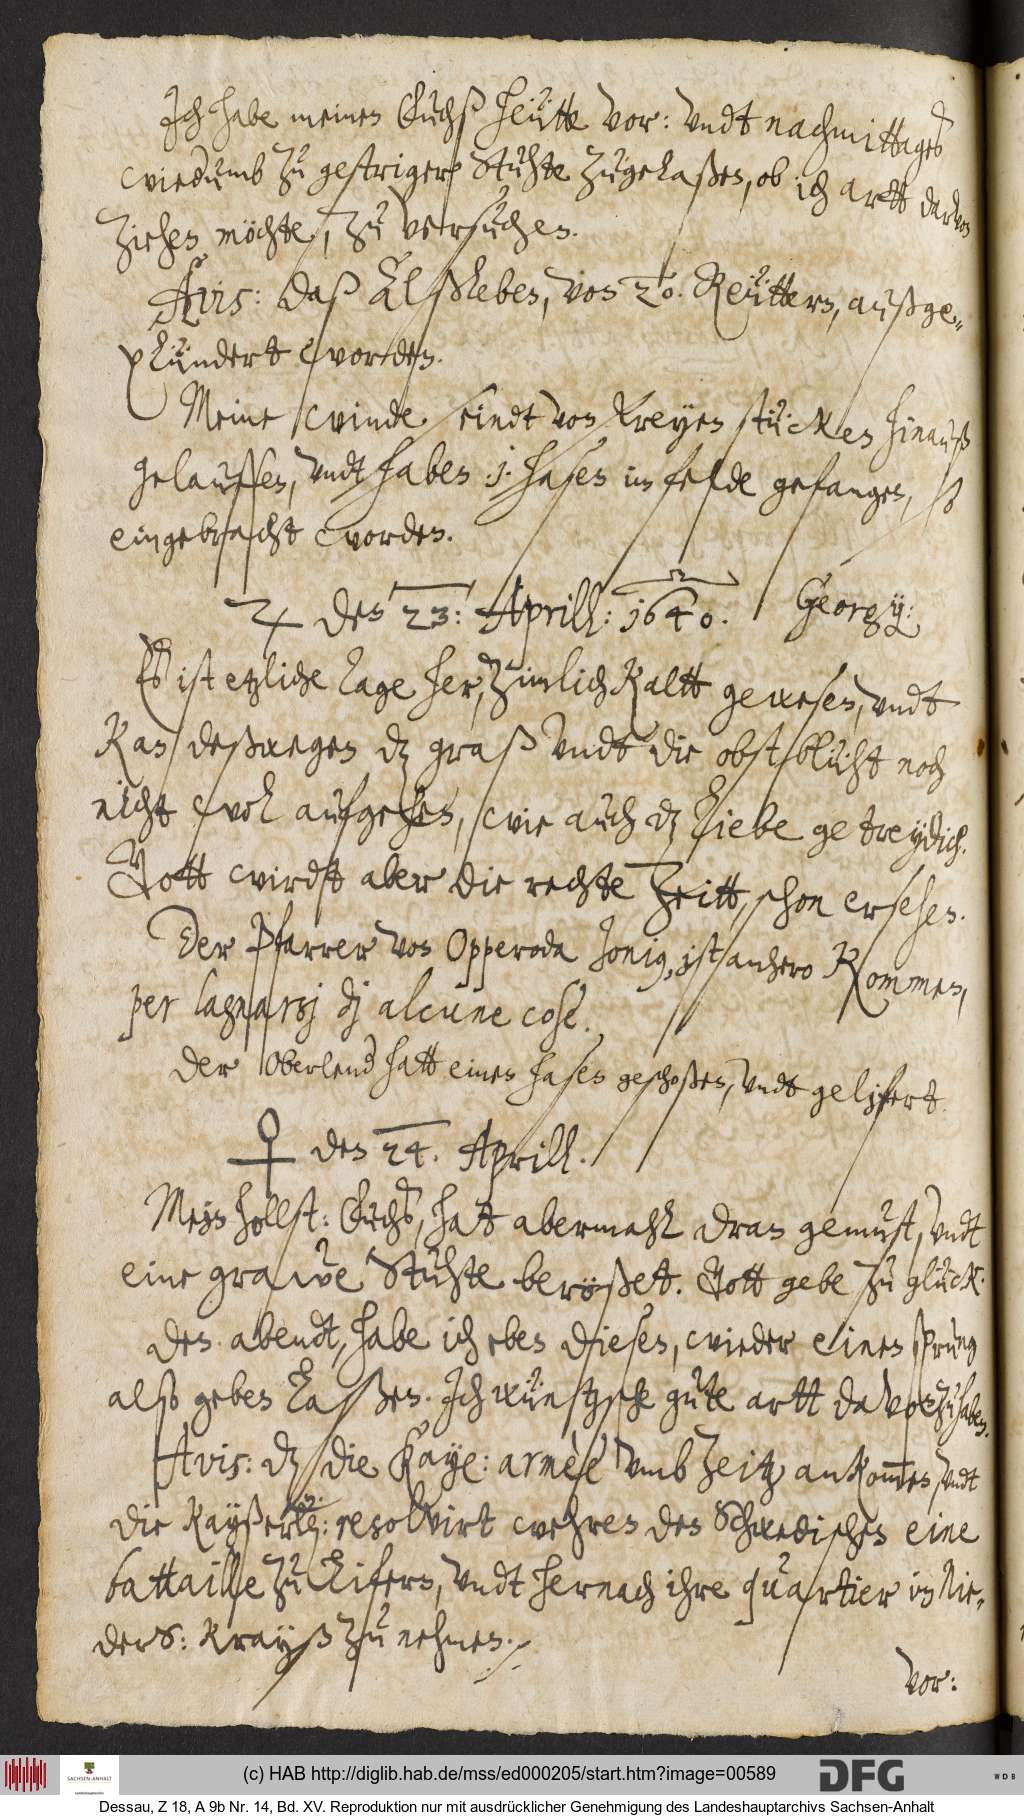 Ich habe meinen Fuchß heütte vor: vndt nachmittages
wiedumb zu gestriger Stuhte zugelaßen, ob ich artt darvon
ziehen möchte, zu versuchen.
Avis: daß Alßleben, von 20. Reüttern, außge-
plündert worden.
Meine winde seindt von freyen stücken hinauß
gelauffen, vndt haben .1. hasen im felde gefangen, so
eingebracht worden.
♃ den 23: Aprill: 1640. Georgy:
Es ist etzliche tage her, zimlich kaltt gewesen, vndt
kan deßwegen dz graß vndt die obstblüht noch
nicht wol aufgehen, wie auch dz liebe getreydich.
Gott wirdt aber die rechte Zeitt, schon ersehen.
Der Pfarrer von Opperoda Jonius, ist anhero kommen,
per lagnarsj dj alcune cose.
Der Oberlend hatt einen hasen geschoßen, vndt gelifert
♀ den 24. Aprill.
Mein hollst: Fuchs, hatt abermahl dran gemust, vndt
eine grawe Stuhte berößelt. Gott gebe zu glück.
den abendt, habe ich eben diesen, wieder einen sprung
also geben laßen. Ich wüntzsche gute artt davon zu haben.
Avis: dz die Kaye: armèe vmb Zeitz ankommen vndt
die Kayßerln: resolvirt wehren den Schwedischen eine
battaille zu liefern, vndt hernach ihre quartier in Nie-
ders: Krayß zu nehmen.
vor:
(c) HAB http://diglib.hab.de/mss/ed000205/start.htm?image=00589
SACHSEN-ANHALT
Landeshauptarchiv
DFG
WDB
Dessau, Z 18, A 9b Nr. 14, Bd. XV. Reproduktion nur mit ausdrücklicher Genehmigung des Landeshauptarchivs Sachsen-Anhalt